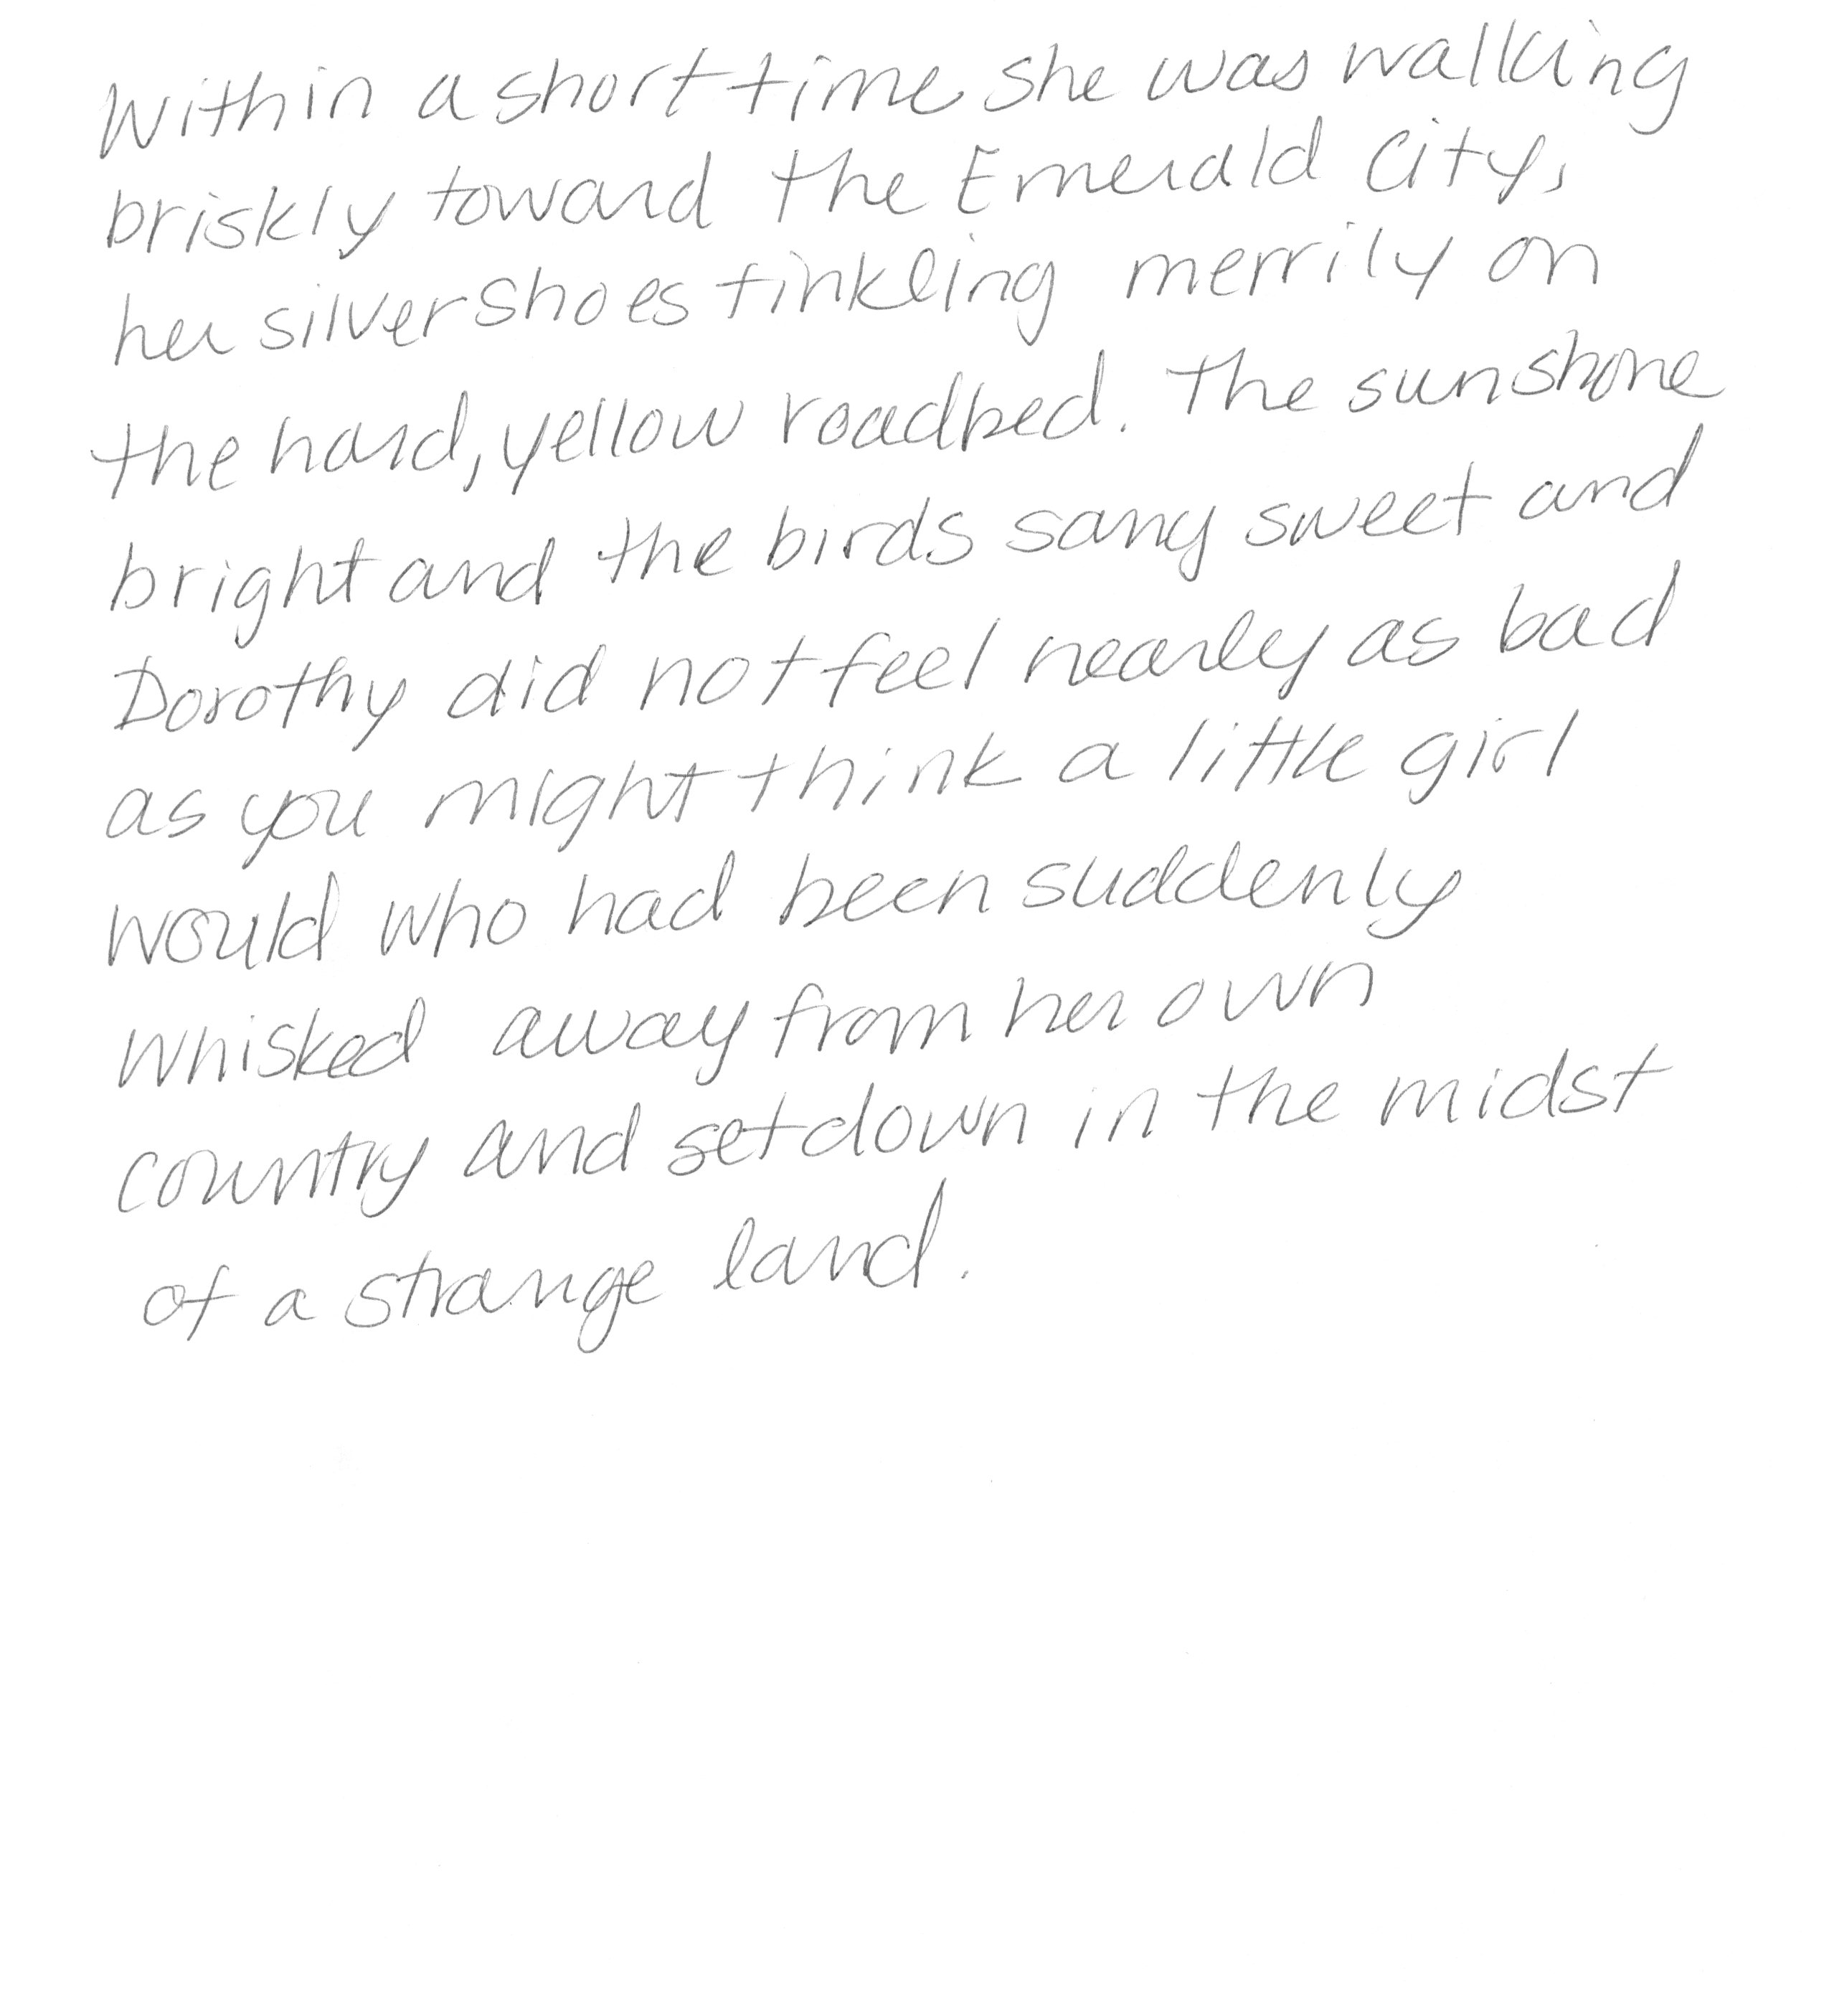 Within a short time she was walking
briskly toward the Emerald City,
her silver shoes tinkling merrily on
the hard, yellow roadbed. The sun shone
bright and the birds sang sweet and
Dorothy did not feel nearly as bad
as you might think a little girl
would who had been suddenly
whisked away from her own
country and set down in the midst
of a strange land.